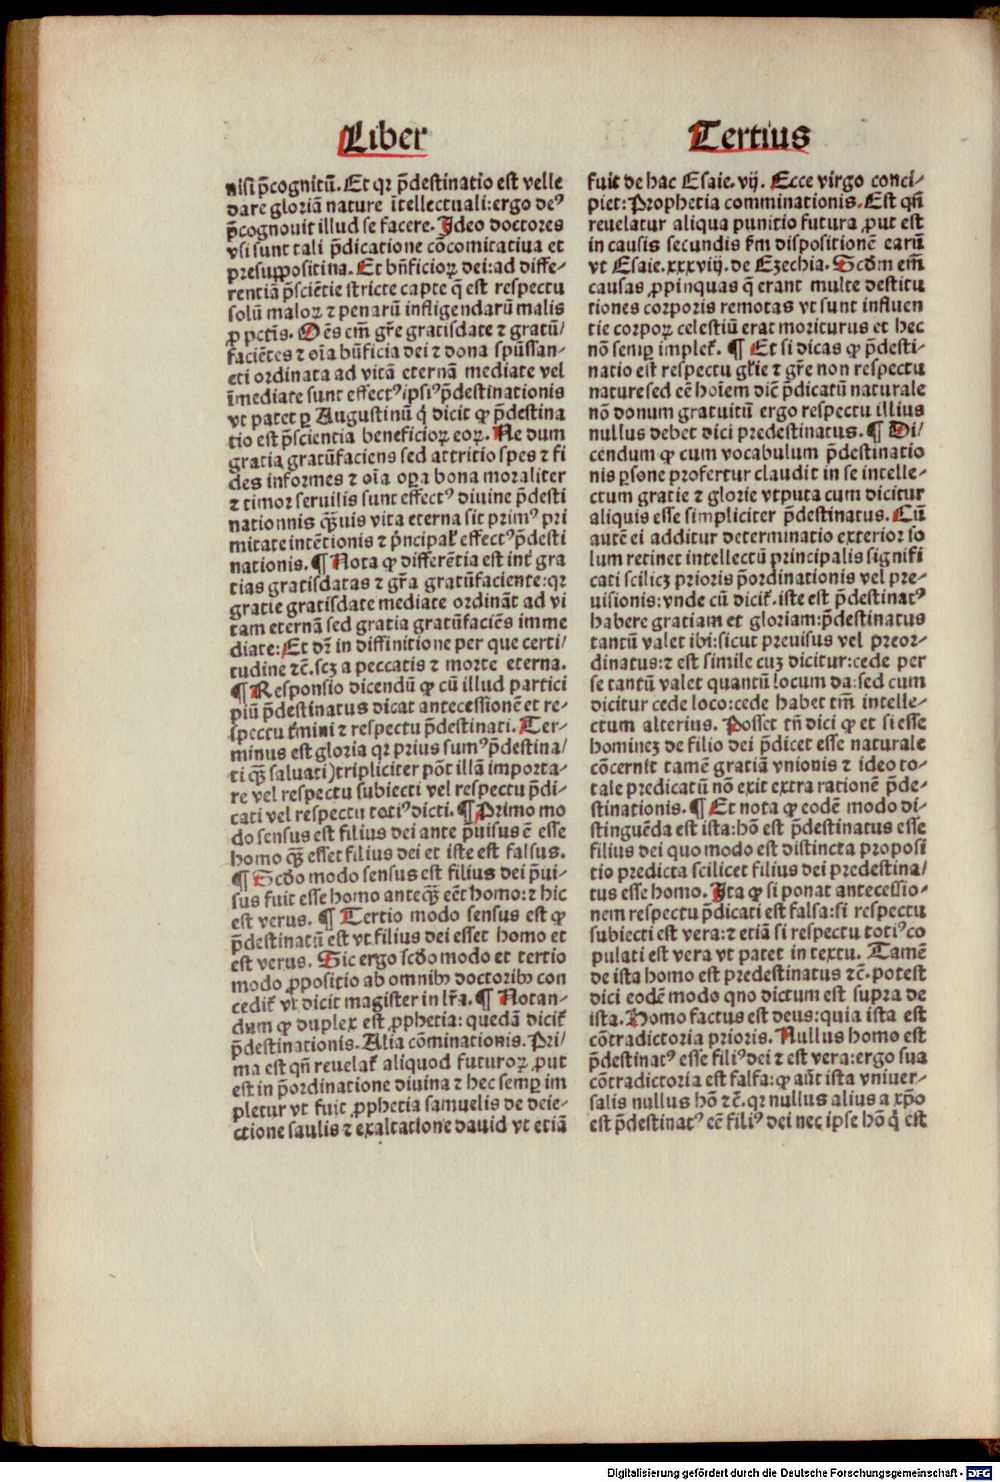 Liber
nisi p̄cognitū. Et qꝛ p̄destinatio est velle
dare gloriā nature ītellectuali: ergo deꝰ
p̄cognouit illud se facere. Ideo doctores
vsi sunt tali p̄dicatione cōcomitatiua et
presuppositina. Et bn̄ficioꝝ dei: ad diffe⸗
rentiā p̄sciētie stricte capte q̄ est respectu
solū maloꝝ ⁊ penarū infligendarū malis
ꝓ pctīs. Oēs em̄ gr̄e gratisdate ⁊ gratū/
faciētes ⁊ oīa bn̄ficia dei ⁊ dona spūssan⸗
cti ordinata ad vitā eternā mediate vel
īmediate sunt effectꝰ ipsiꝰ p̄destinationis
vt patet ꝑ Augustinū q̇ dicit ꝙ p̄destina
tio est p̄scientia beneficioꝝ eoꝝ. Ne dum
gratia gratūfaciens sed attritio spes ⁊ fi
des informes ⁊ oīa oꝑa bona moraliter
⁊ timor seruilis sunt effectꝰ diuine p̄desti
nationnis qꝙ̄uis vita eterna sit primꝰ pri
mitate intētionis ⁊ p̄ncipal̕ effectꝰ p̄desti
nationis. ¶ Nota ꝙ differētia est int̕ gra
tias gratisdatas ⁊ gr̄a gratūfaciente: qꝛ
gratie gratisdate mediate ordināt ad vi
tam eternā sed gratia gratūfaciēs imme
diate: Et dr̄ in diffinitione per que certi/
tudine ⁊c̄. scꝫ a peccatis ⁊ morte eterna.
¶ Responsio dicendū ꝙ cū illud partici
piū p̄destinatus dicat antecessionē et re⸗
spectu t̕mini ⁊ respectu p̄destinati. Ter⸗
minus est gloria qꝛ prius sumꝰ p̄destina/
ti qꝙ̄ saluati) tripliciter pōt illā importa⸗
re vel respectu subiecti vel respectu p̄di⸗
cati vel respectu totiꝰ dicti. ¶ Primo mo
do sensus est filius dei ante p̄uisus ē esse
homo qꝙ̄ esset filius dei et iste est falsus.
¶ Scd̄o modo sensus est filius dei p̄ui⸗
sus fuit esse homo anteqꝙ̄ eēt homo: ⁊ hic
est verus. ¶ Tertio modo sensus est ꝙ
p̄destinatū est vt filius dei esset homo et
est verus. Sic ergo scd̄o modo et tertio
modo ꝓpositio ab omnibꝰ doctoribꝰ con
cedit̕ vt dicit magister in lr̄a. ¶ Notan⸗
dum ꝙ duplex est ꝓphetia: quedā dicit̕
p̄destinationis. Alia cōminationis. Pri/
ma est qn̄ reuelat̕ aliquod futuroꝝ ꝓut
est in p̄ordinatione diuina ⁊ hec semꝑ im
pletur vt fuit ꝓphetia samuelis de deie⸗
ctione saulis ⁊ exaltatione dauid vt etiā
Tertius
fuit de hac Esaie. vij. Ecce virgo conci⸗
piet: Prophetia comminationis. Est qn̄
reuelatur aliqua punitio futura ꝓut est
in causis secundis fm̄ dispositionē earū
vt Esaie. xxxviij. de Ezechia. Scd̄m em̄
causas ꝓpinquas q̄ erant multe destitu
tiones corporis remotas vt sunt influen
tie corpoꝝ celestiū erat moriturus et hec
nō semꝑ implet̕. ¶ Et si dicas ꝙ p̄desti⸗
natio est respectu gl̕ie ⁊ gr̄e non respectu
nature sed eē hoīem dic̄ p̄dicatū naturale
nō donum gratuitū ergo respectu illius
nullus debet dici predestinatus. ¶ Di/
cendum ꝙ cum vocabulum p̄destinatio
nis ꝑsone profertur claudit in se intelle⸗
ctum gratie ⁊ glorie vtputa cum dicitur
aliquis esse simpliciter p̄destinatus. Cū
autē ei additur determinatio exterior so
lum retinet intellectū principalis signifi
cati scilicꝫ prioris p̄ordinationis vel pre⸗
uisionis: vnde cū dicit̕. iste est p̄destinatꝰ
habere gratiam et gloriam: p̄destinatus
tantū valet ibi: sicut preuisus vel preor⸗
dinatus: ⁊ est simile cuꝫ dicitur: cede per
se tantū valet quantū locum da: sed cum
dicitur cede loco: cede habet tm̄ intelle⸗
ctum alterius. Posset tn̄ dici ꝙ et si esse
homineꝫ de filio dei p̄dicet esse naturale
cōcernit tamē gratiā vnionis ⁊ ideo to⸗
tale predicatū nō exit extra rationē p̄de⸗
stinationis. ¶ Et nota ꝙ eodē modo di⸗
stinguēda est ista: hō est p̄destinatus esse
filius dei quo modo est distincta proposi
tio predicta scilicet filius dei predestina/
tus esse homo. Ita ꝙ si ponat antecessio⸗
nem respectu p̄dicati est falsa: si respectu
subiecti est vera: ⁊ etiā si respectu totiꝰ co
pulati est vera vt patet in textu. Tamē
de ista homo est predestinatus ⁊c̄. potest
dici eodē modo qno dictum est supra de
ista. Homo factus est deus: quia ista est
cōtradictoria prioris. Nullus homo est
p̄destinatꝰ esse filiꝰ dei ⁊ est vera: ergo sua
cōtradictoria est falsa: ꝙ aūt ista vniuer⸗
salis nullus hō ⁊c̄. qꝛ nullus alius a xp̄o
est p̄destinatꝰ eē filiꝰ dei nec ipse hō q̇ est
Digitalisierung gefördert durch die Deutsche Forschungsgemeinschaft - DFG